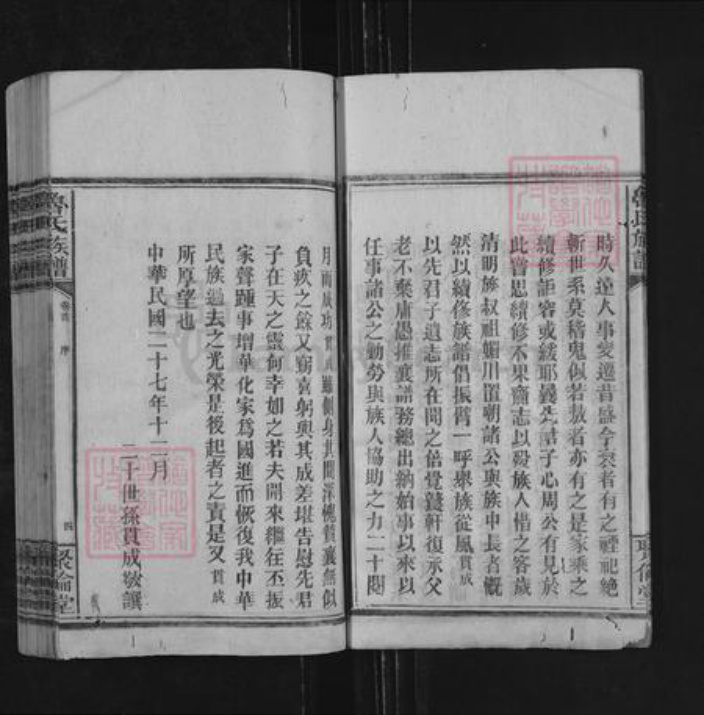 魯氏族譜
時久遠人事變遷昔盛今衰者有之禋祀絕
斬世系莫稽鬼餒若敖者亦有之是家乘之
續修詎容或緩耶曩先君子心周公有見於
此曾思續修不果齎志以歿族人惜之客歲
清明族叔祖媚川置朝諸公與族中長者慨
然以續修族譜倡振臂一呼舉族從風貫成
以先君子遺志所在聞之倍覺軒復承父
老不棄庸愚推襄譜務總出納始事以來以
任事諸公之勤勞與族人協助之力二十閱
月而成功貫成雖側身其間深愧贊襄無似
負疚之餘又竊喜躬與其成差堪告慰先君
子在天之靈何幸如之若夫開來繼往丕振
家聲踵事增華化家為國進而恢復我中華
民族過去之光榮是後起者之責是又貫成
所厚望也
中華民國二十七年十二月
二十世孫貫成敬譔
魯氏族譜
卷首
序
四
聚倫堂